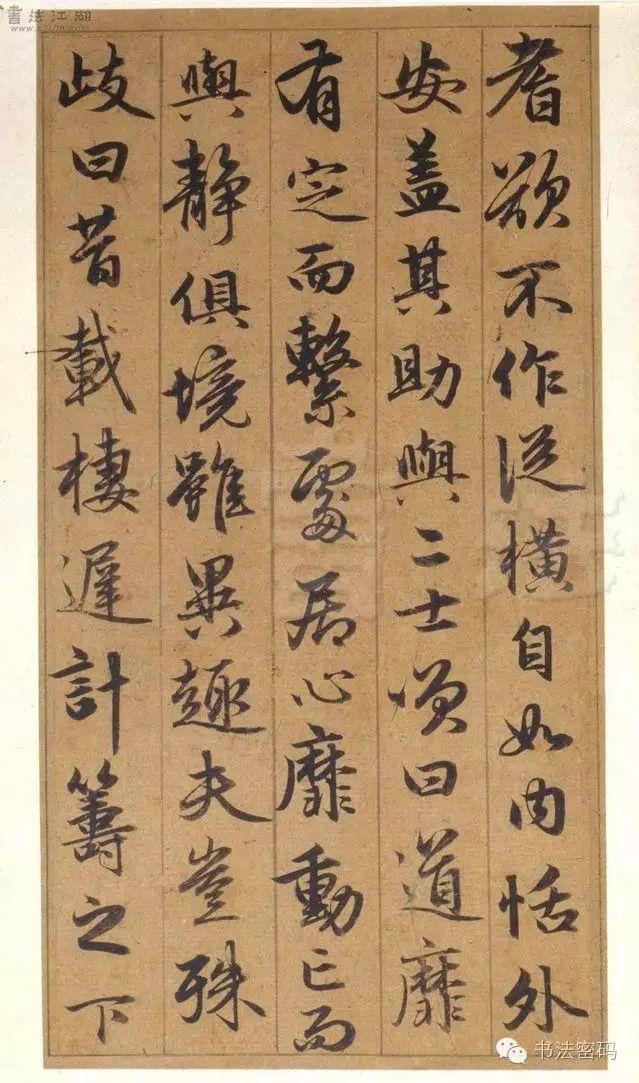 耆欲不作従横自如内恬外
安盖其助與二士頌曰道靡
有定而繫處居心靡動亡而
與静俱境雖異趣夫豈殊
歧曰昔載棲遲計籌之下
書法江湖
书法密码